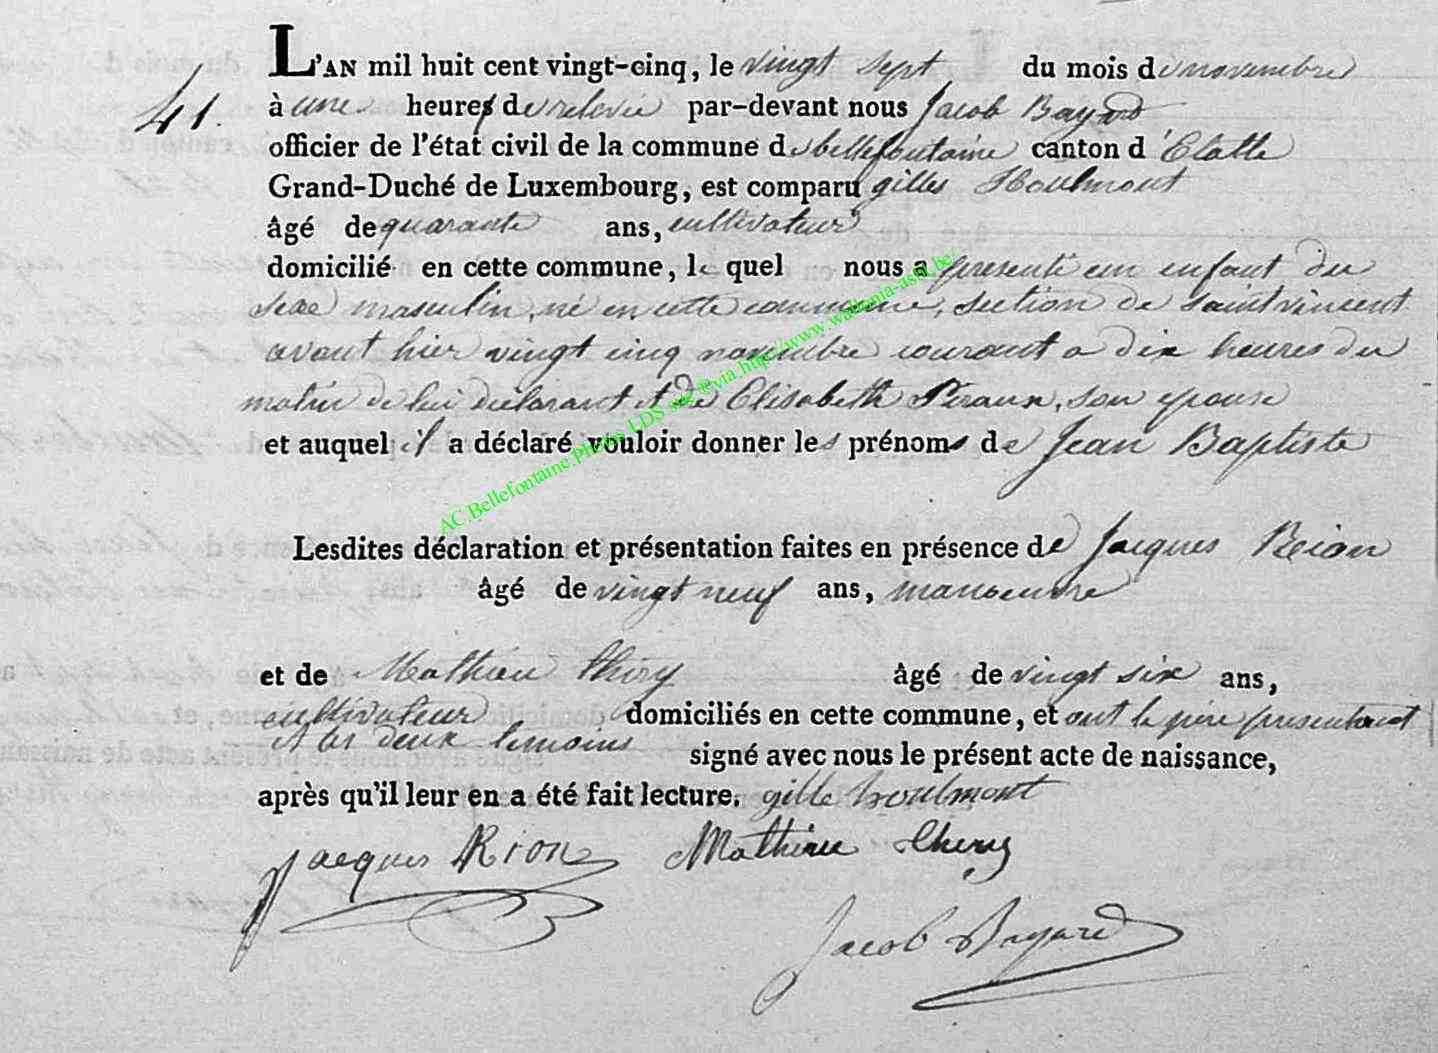 L'AN mil huit cent vingt-cinq, le vingt sept du mois de novembre
41. à une heures de relevée par-devant nous Jacob Bayard
officier de l'état civil de la commune de bellefontaine canton d'Etalle
Grand-Duché de Luxembourg, est comparu gilles Houlmont
âgé de quarante ans, cultivateur
domicilié en cette commune, le quel nous a presenté un enfant du
sexe masculin, né en cette commune, section de saint vincent
avant hier vingt cinq novembre courant a dix heures du
matin de lui declarant et de Elisabeth Piraux, son epouse
et auquel il a déclaré vouloir donner les prénoms de Jean Baptiste
AC.Bellefontaine.Photo LDS via http://www.wallonia-asbl.be/
Lesdites déclaration et présentation faites en présence de Jacques Reion
âgé de vingt neuf ans, manoeuvre
et de Mathieu thiry âgé de vingt six ans,
cultivateur domiciliés en cette commune, et ont le père presentant
et les deux temoins signé avec nous le présent acte de naissance,
après qu'il leur en a été fait lecture. gille houlmont
Jacques Rion Mathieu thiry
Jacob Bayard